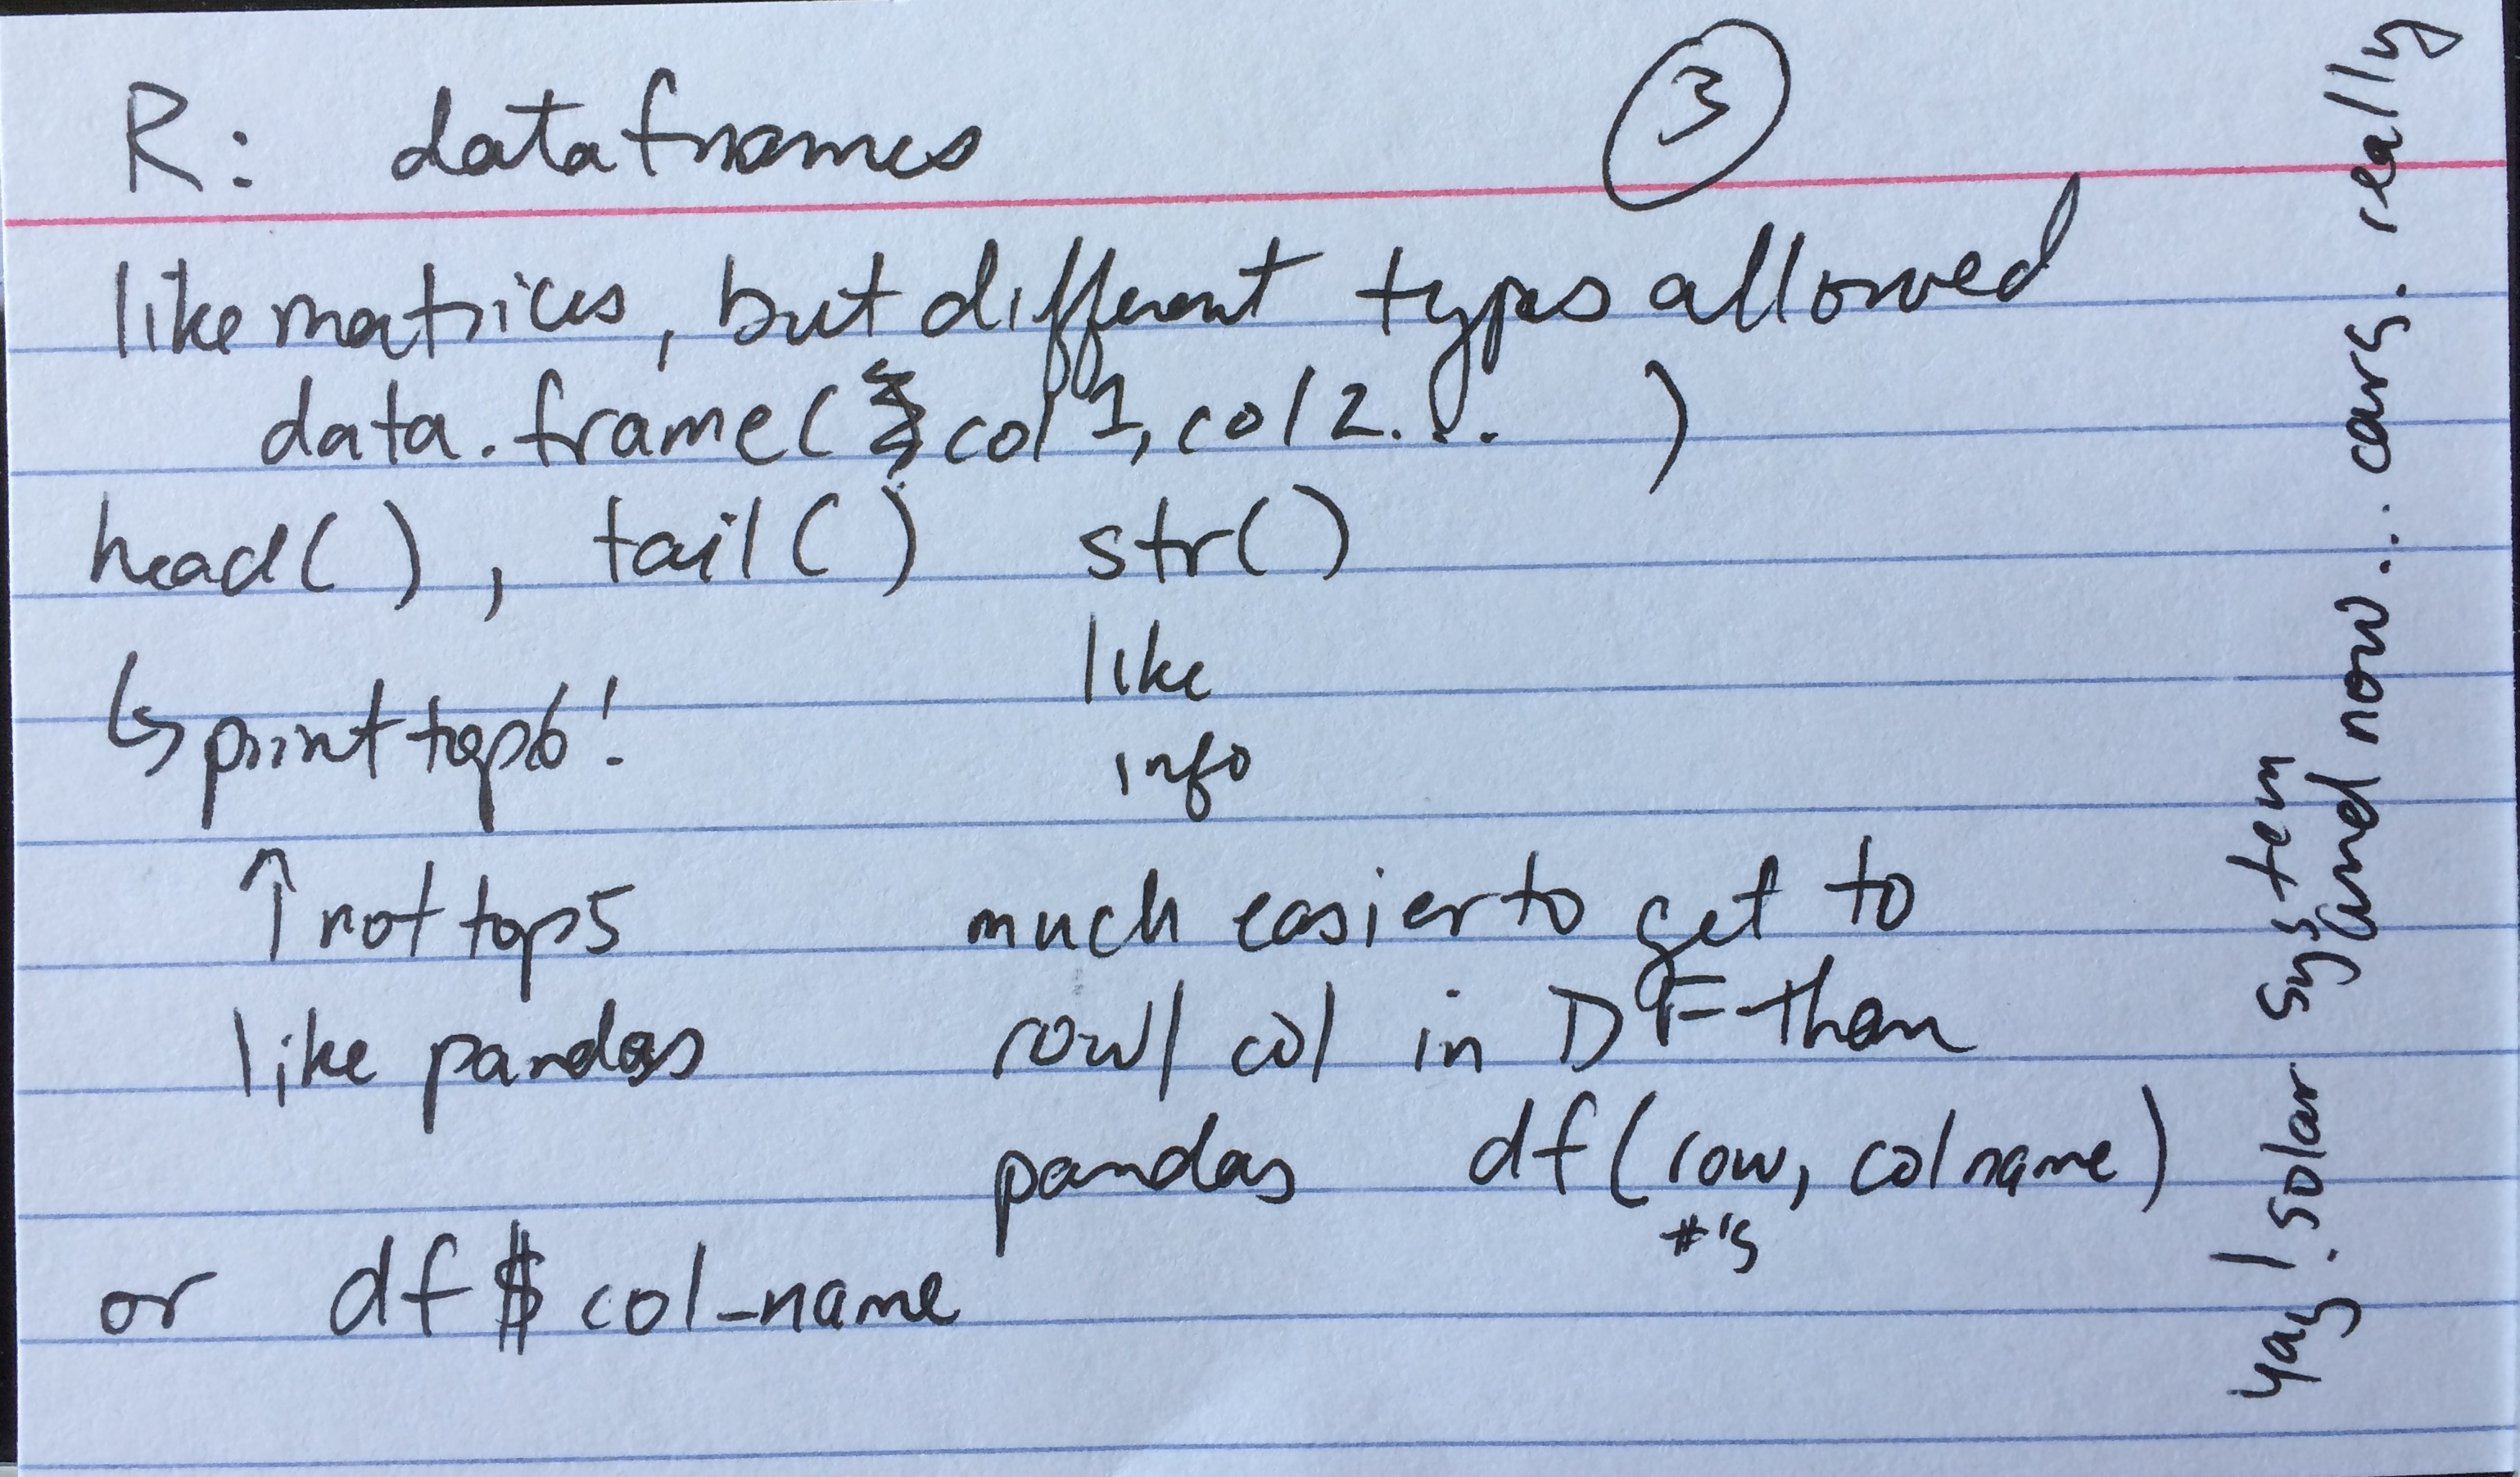 R: dataframes
3
like matrices, but different types allowed
data.frame(col1, col2... )
head(), tail() str()
↳ print top 6!
like
info
↑ not top 5
like pandas
much easier to get to
row/col in DF than
pandas df(row, colname)
#'s
or df$col_name
yay! solar system
and now... cars. really